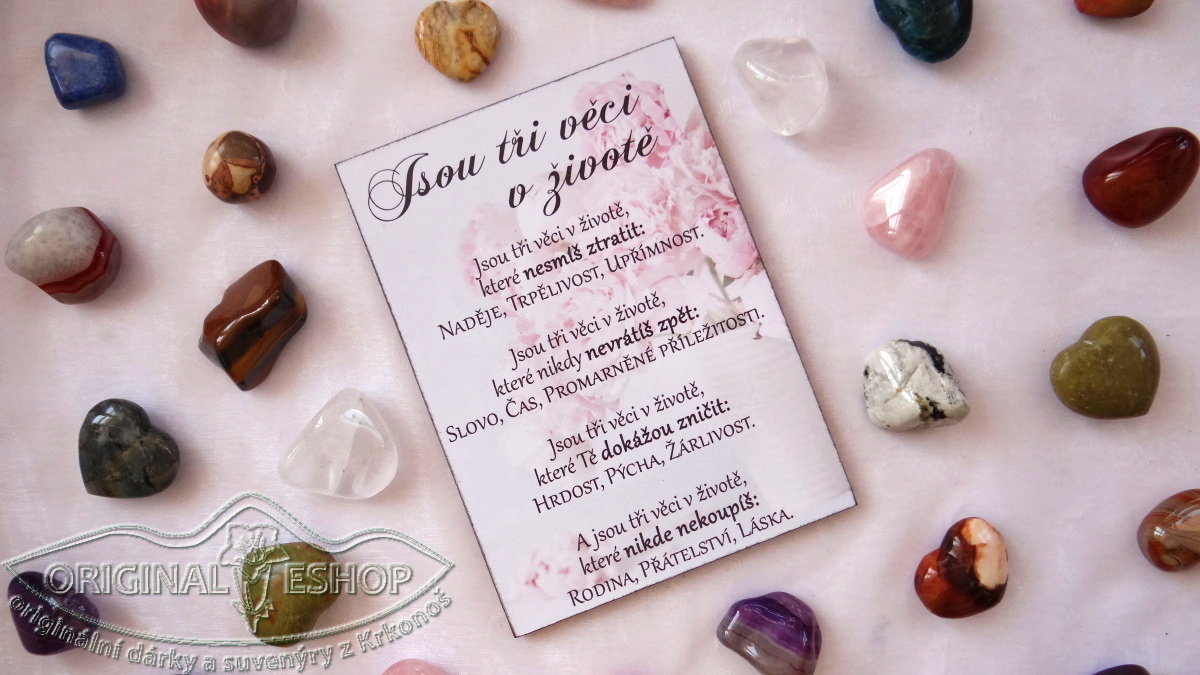 Jsou tři věci
v životě
Jsou tři věci v životě,
které nesmíš ztratit:
Naděje, Trpělivost, Upřímnost.
Jsou tři věci v životě,
které nikdy nevrátíš zpět:
Slovo, Čas, Promarněné příležitosti.
Jsou tři věci v životě,
které Tě dokážou zničit:
Hrdost, Pýcha, Žárlivost.
A jsou tři věci v životě,
které nikde nekoupíš:
Rodina, Přátelství, Láska.
ORIGINAL ESHOP
originální dárky a suvenýry z Krkonoš